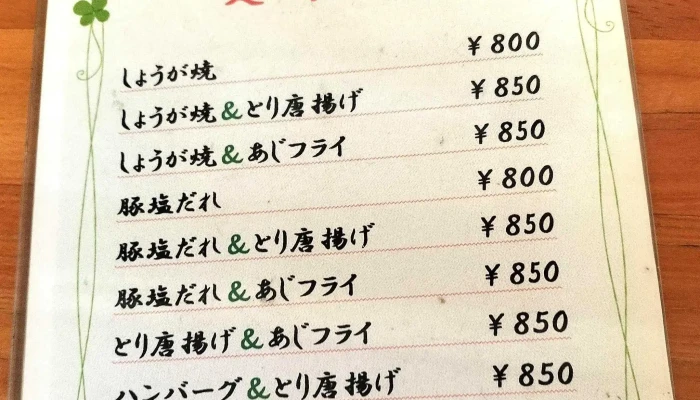 しょうが焼 ¥800
しょうが焼&とり唐揚げ ¥850
しょうが焼&あじフライ ¥850
豚塩だれ ¥800
豚塩だれ&とり唐揚げ ¥850
豚塩だれ&あじフライ ¥850
とり唐揚げ&あじフライ ¥850
ハンバーグ&とり唐揚げ ¥850